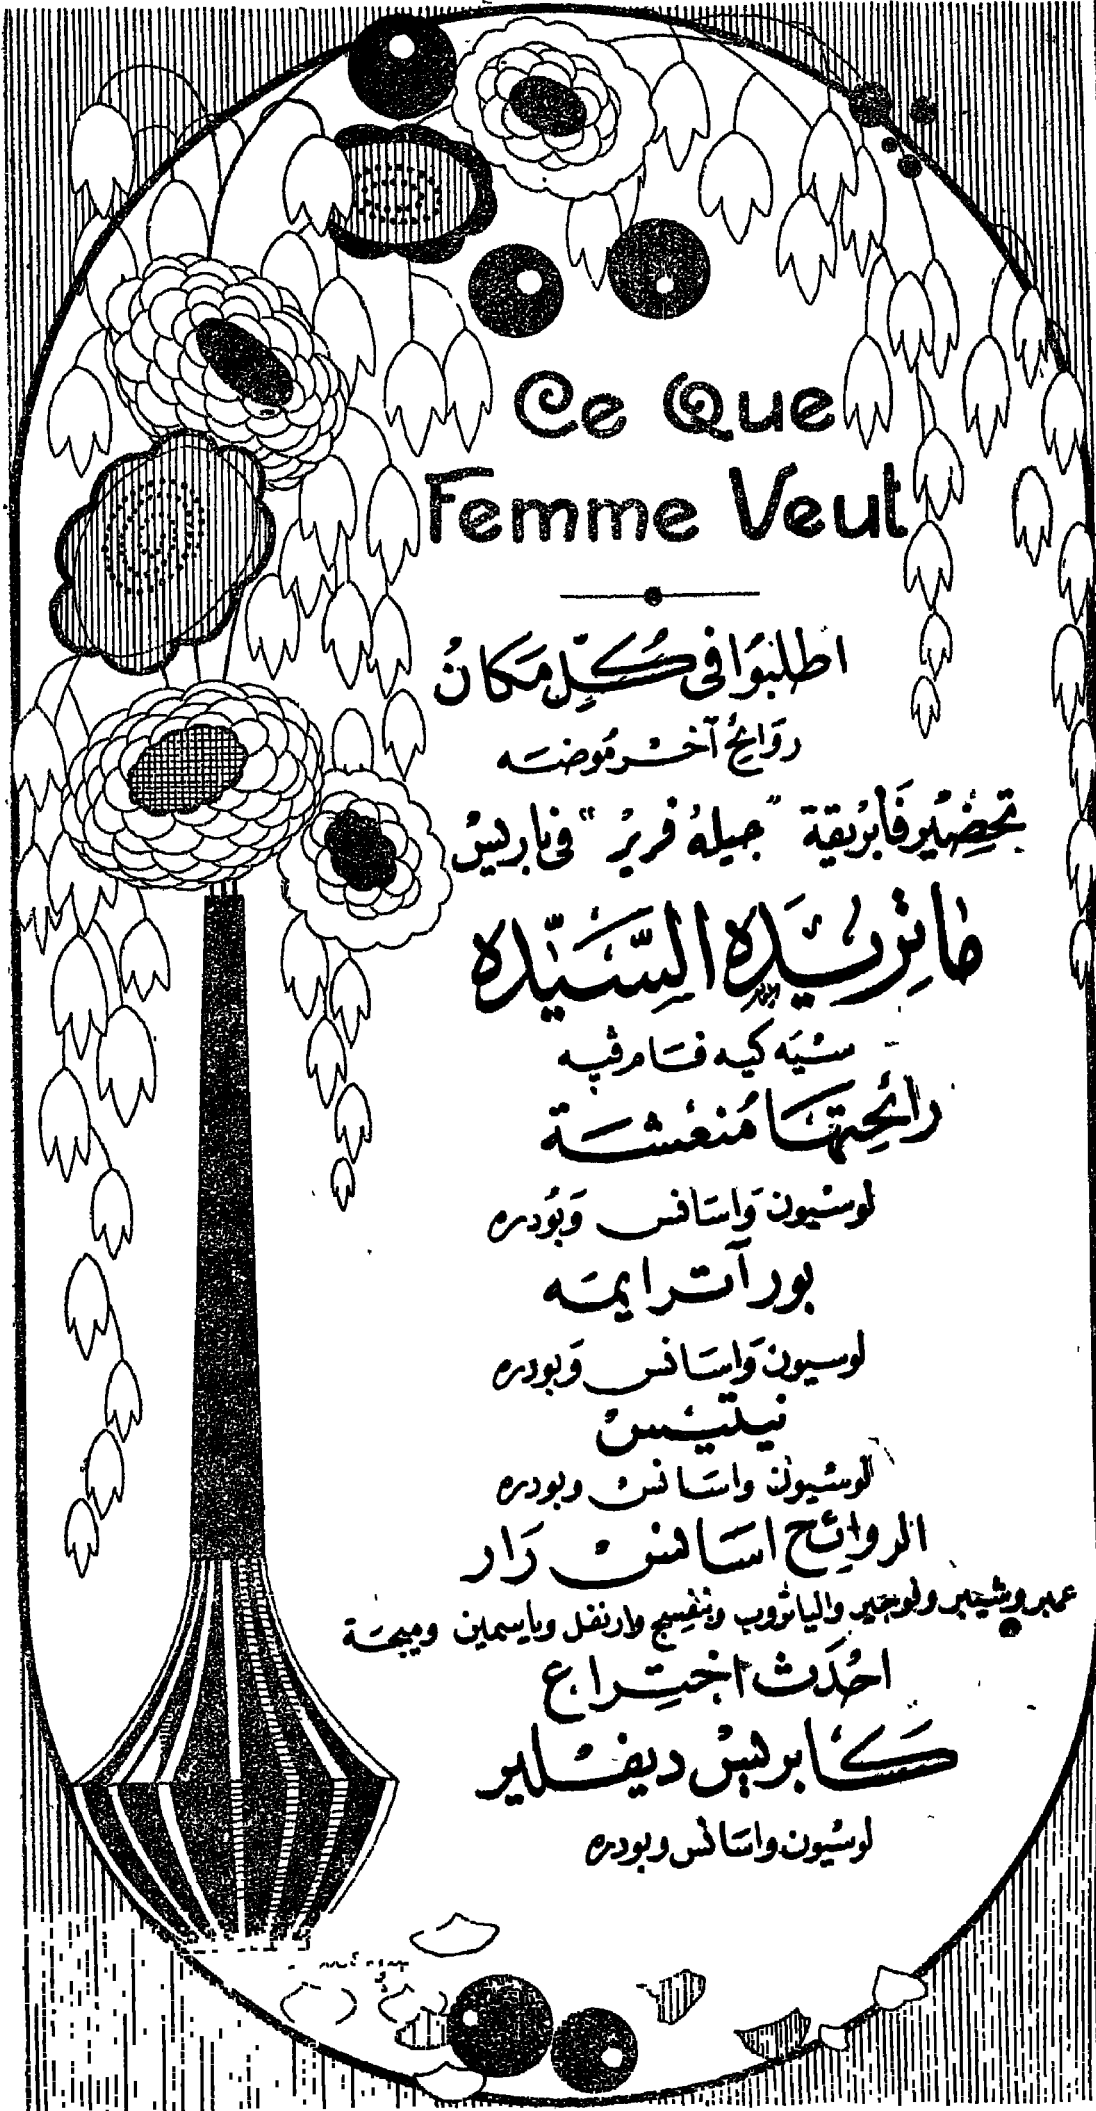 Ce Que
Femme Veut
اطلبوا في كل مكان
روائح آخر موضه
تحضير فابريقة "جيله فرير" في باريس
ما تريده السيده
سيه كيه فام فيه
رائحتها منعشة
لوسيون واسانس وبودره
بور آترايمه
لوسيون واسانس وبودره
نيتيس
لوسيون واسانس وبودره
الروائح اسانس رار
عمبر وشيبر وفوجير والياتروب وبنفسج وارنفل وياسمين وميحة
احدث اختراع
كابريس ديفلير
لوسيون واسانس وبودره